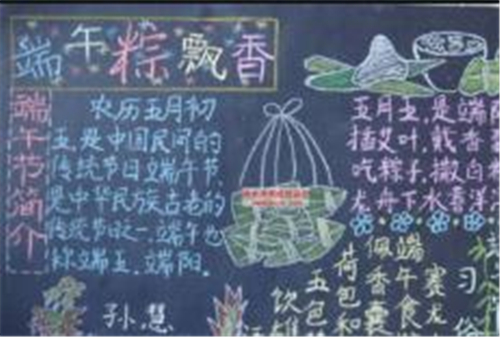 端午粽飘香
端午节简介
农历五月初
五,是中国民间的
传统节日端午节,
是中华民族古老的
传统节日之一,端午也
称端五,端阳。
五月五,是端
插艾叶,戴香
吃粽子,撒白
龙舟下水喜洋
习俗
赛龙
端午食
佩香囊
荷包和
五包
饮
孙慧